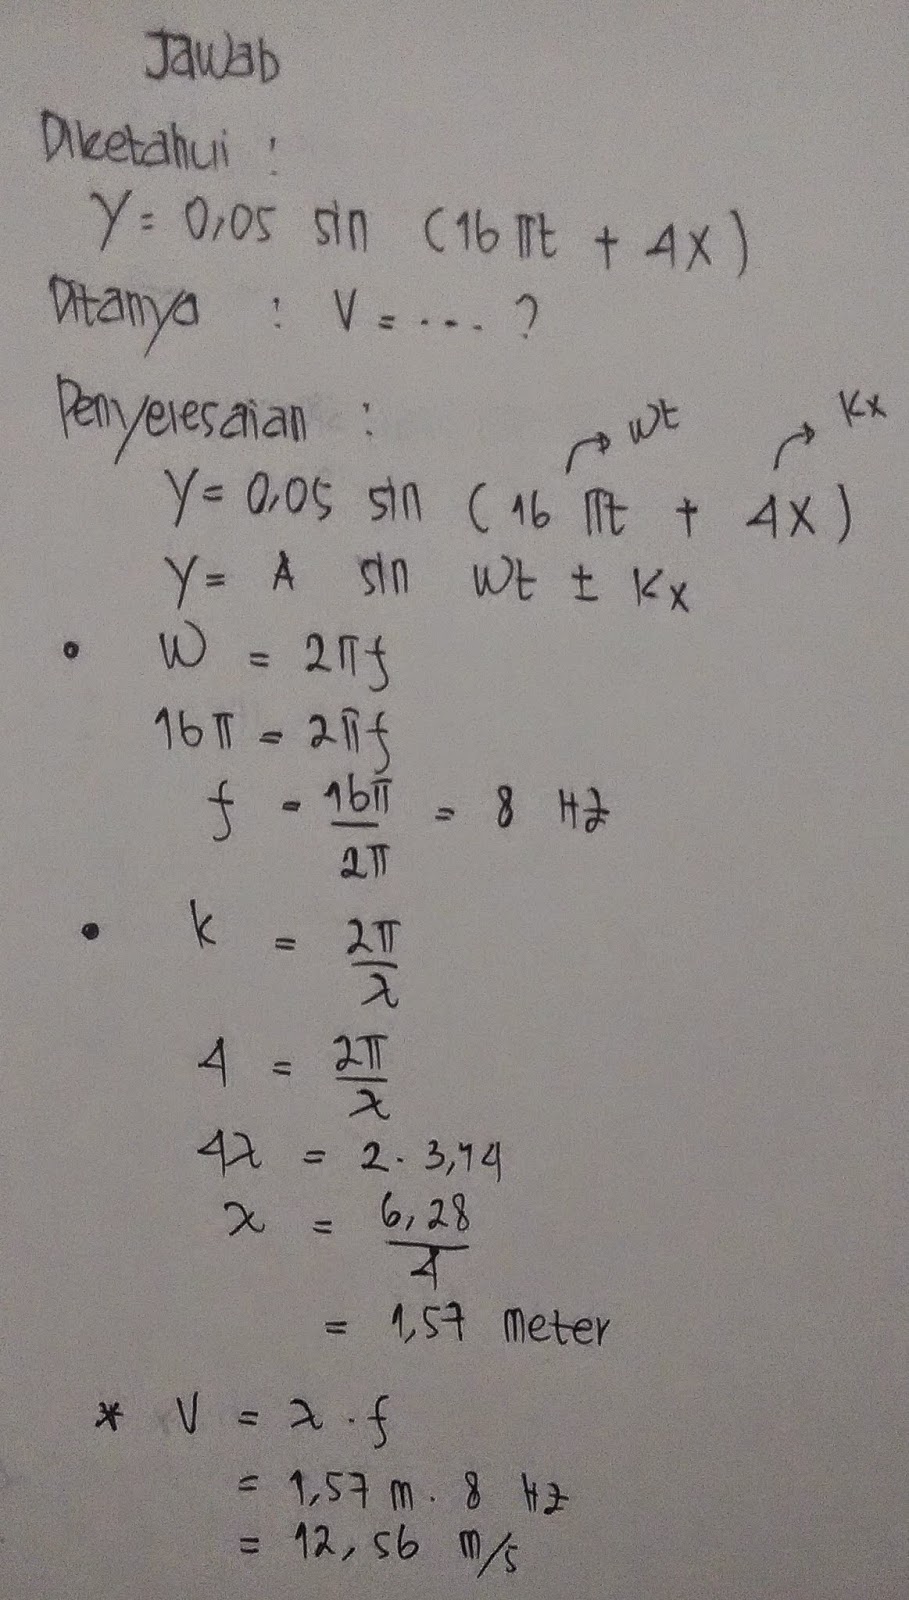 Jawab
Diketahui :
Y = 0,05 sin (16 πt + 4x)
Ditanya : V = .... ?
Penyelesaian :
Wt Kx
Y = 0,05 sin (16 πt + 4x)
Y = A sin Wt ± Kx
• W = 2πf
16π = 2πf
f = 16π/2π = 8 Hz
• k = 2π/λ
4 = 2π/λ
4λ = 2 . 3,14
λ = 6,28/4
= 1,57 meter
* V = λ . f
= 1,57 m . 8 Hz
= 12,56 m/s